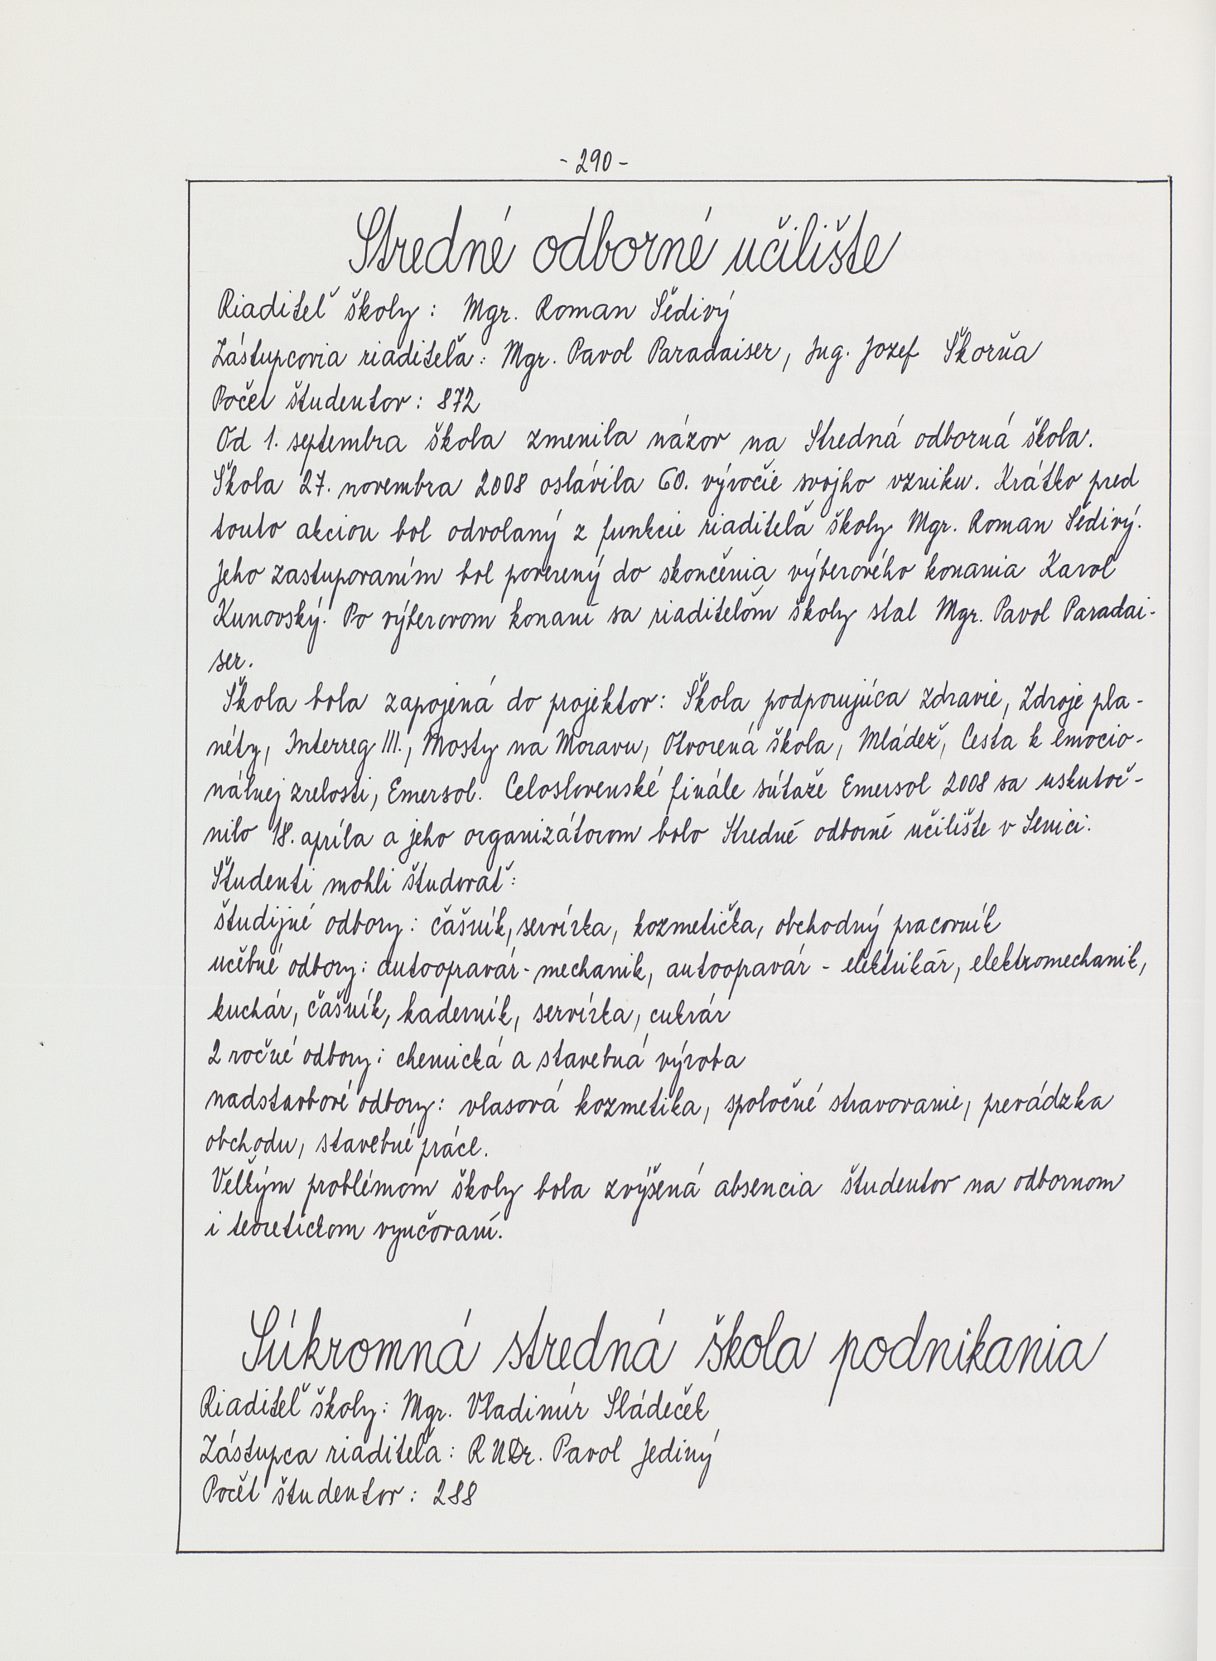 - 290 -
Stredné odborné učilište
Riaditeľ školy: Mgr. Roman Šedivý
Zástupcovia riaditeľa: Mgr. Pavol Paradaiser, Ing. Jozef Škorňa
Počet študentov: 872
Od 1. septembra škola zmenila názov na Stredná odborná škola.
Škola 27. novembra 2008 oslávila 60. výročie svojho vzniku. Krátko pred
touto akciou bol odvolaný z funkcie riaditeľa školy Mgr. Roman Šedivý.
Jeho zastupovaním bol poverený do skončenia výberového konania Karol
Kunovský. Po výberovom konaní sa riaditeľom školy stal Mgr. Pavol Paradai-
ser.
Škola bola zapojená do projektov: Škola podporujúca zdravie, Zdroje pla-
néty, Interreg III., Mosty na Moravu, Otvorená škola, Mládež, Cesta k emocio-
nálnej zrelosti, Emersol. Celoslovenské finále súťaže Emersol 2008 sa uskutoč-
nilo 18. apríla a jeho organizátorom bolo Stredné odborné učilište v Senici.
Študenti mohli študovať:
študijné odbory: čašník, servírka, kozmetička, obchodný pracovník
učebné odbory: autoopravár - mechanik, autoopravár - elektrikár, elektromechanik,
kuchár, čašník, kaderník, servírka, cukrár
2 ročné odbory: chemická a stavebná výroba
nadstavbové odbory: vlasová kozmetika, spoločné stravovanie, prevádzka
obchodu, stavebné práce.
Veľkým problémom školy bola zvýšená absencia študentov na odbornom
i teoretickom vyučovaní.
Súkromná stredná škola podnikania
Riaditeľ školy: Mgr. Vladimír Sládeček
Zástupca riaditeľa: RNDr. Pavol Jediný
Počet študentov: 288